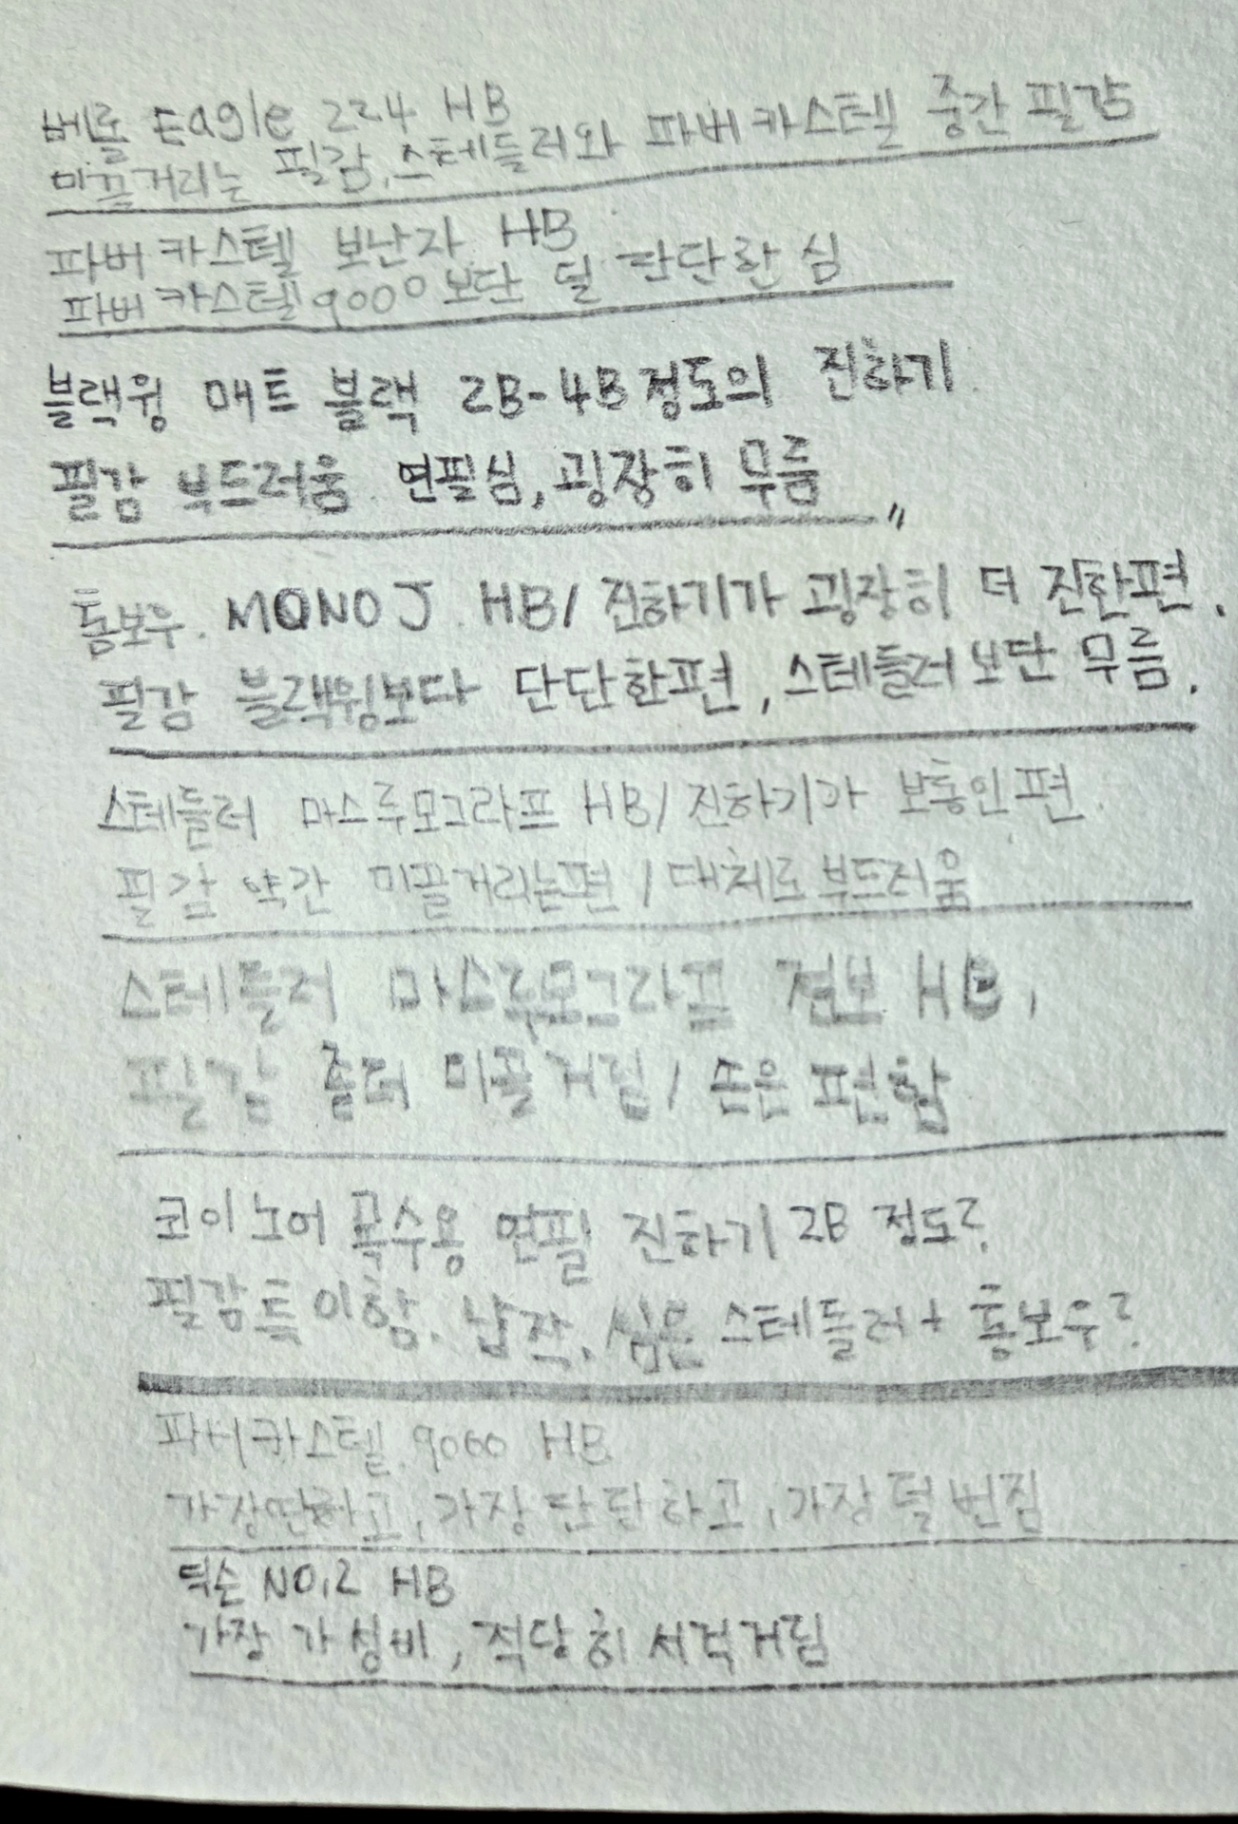 베롤 Eagle 224 HB
미끌거리는 필감, 스테들러와 파버카스텔 중간 필감
파버카스텔 보난자 HB
파버카스텔 9000보단 덜 단단한 심
블랙윙 매트 블랙 2B-4B 정도의 진하기
필감 부드러움 연필심, 굉장히 무름
톰보우. MONO J. HB/ 진하기가 굉장히 더 진한편.
필감 블랙윙보다 단단한편, 스테들러보단 무름.
스테들러 마스루모그라프 HB/ 진하기가 보통인편.
필감 약간 미끌거리는편 / 대체로 부드러움
스테들러 마스루모그라프 점보 HB,
필감 좀더 미끌거림 / 손은 편함
코이노어 목수용 연필 진하기 2B 정도?
필감 특이함. 납작. 심은 스테들러 + 톰보우?
파버카스텔 9000 HB
가장 딴하고, 가장 단단하고, 가장 덜 번짐
딕슨 NO.2 HB
가장 가성비, 적당히 서걱거림